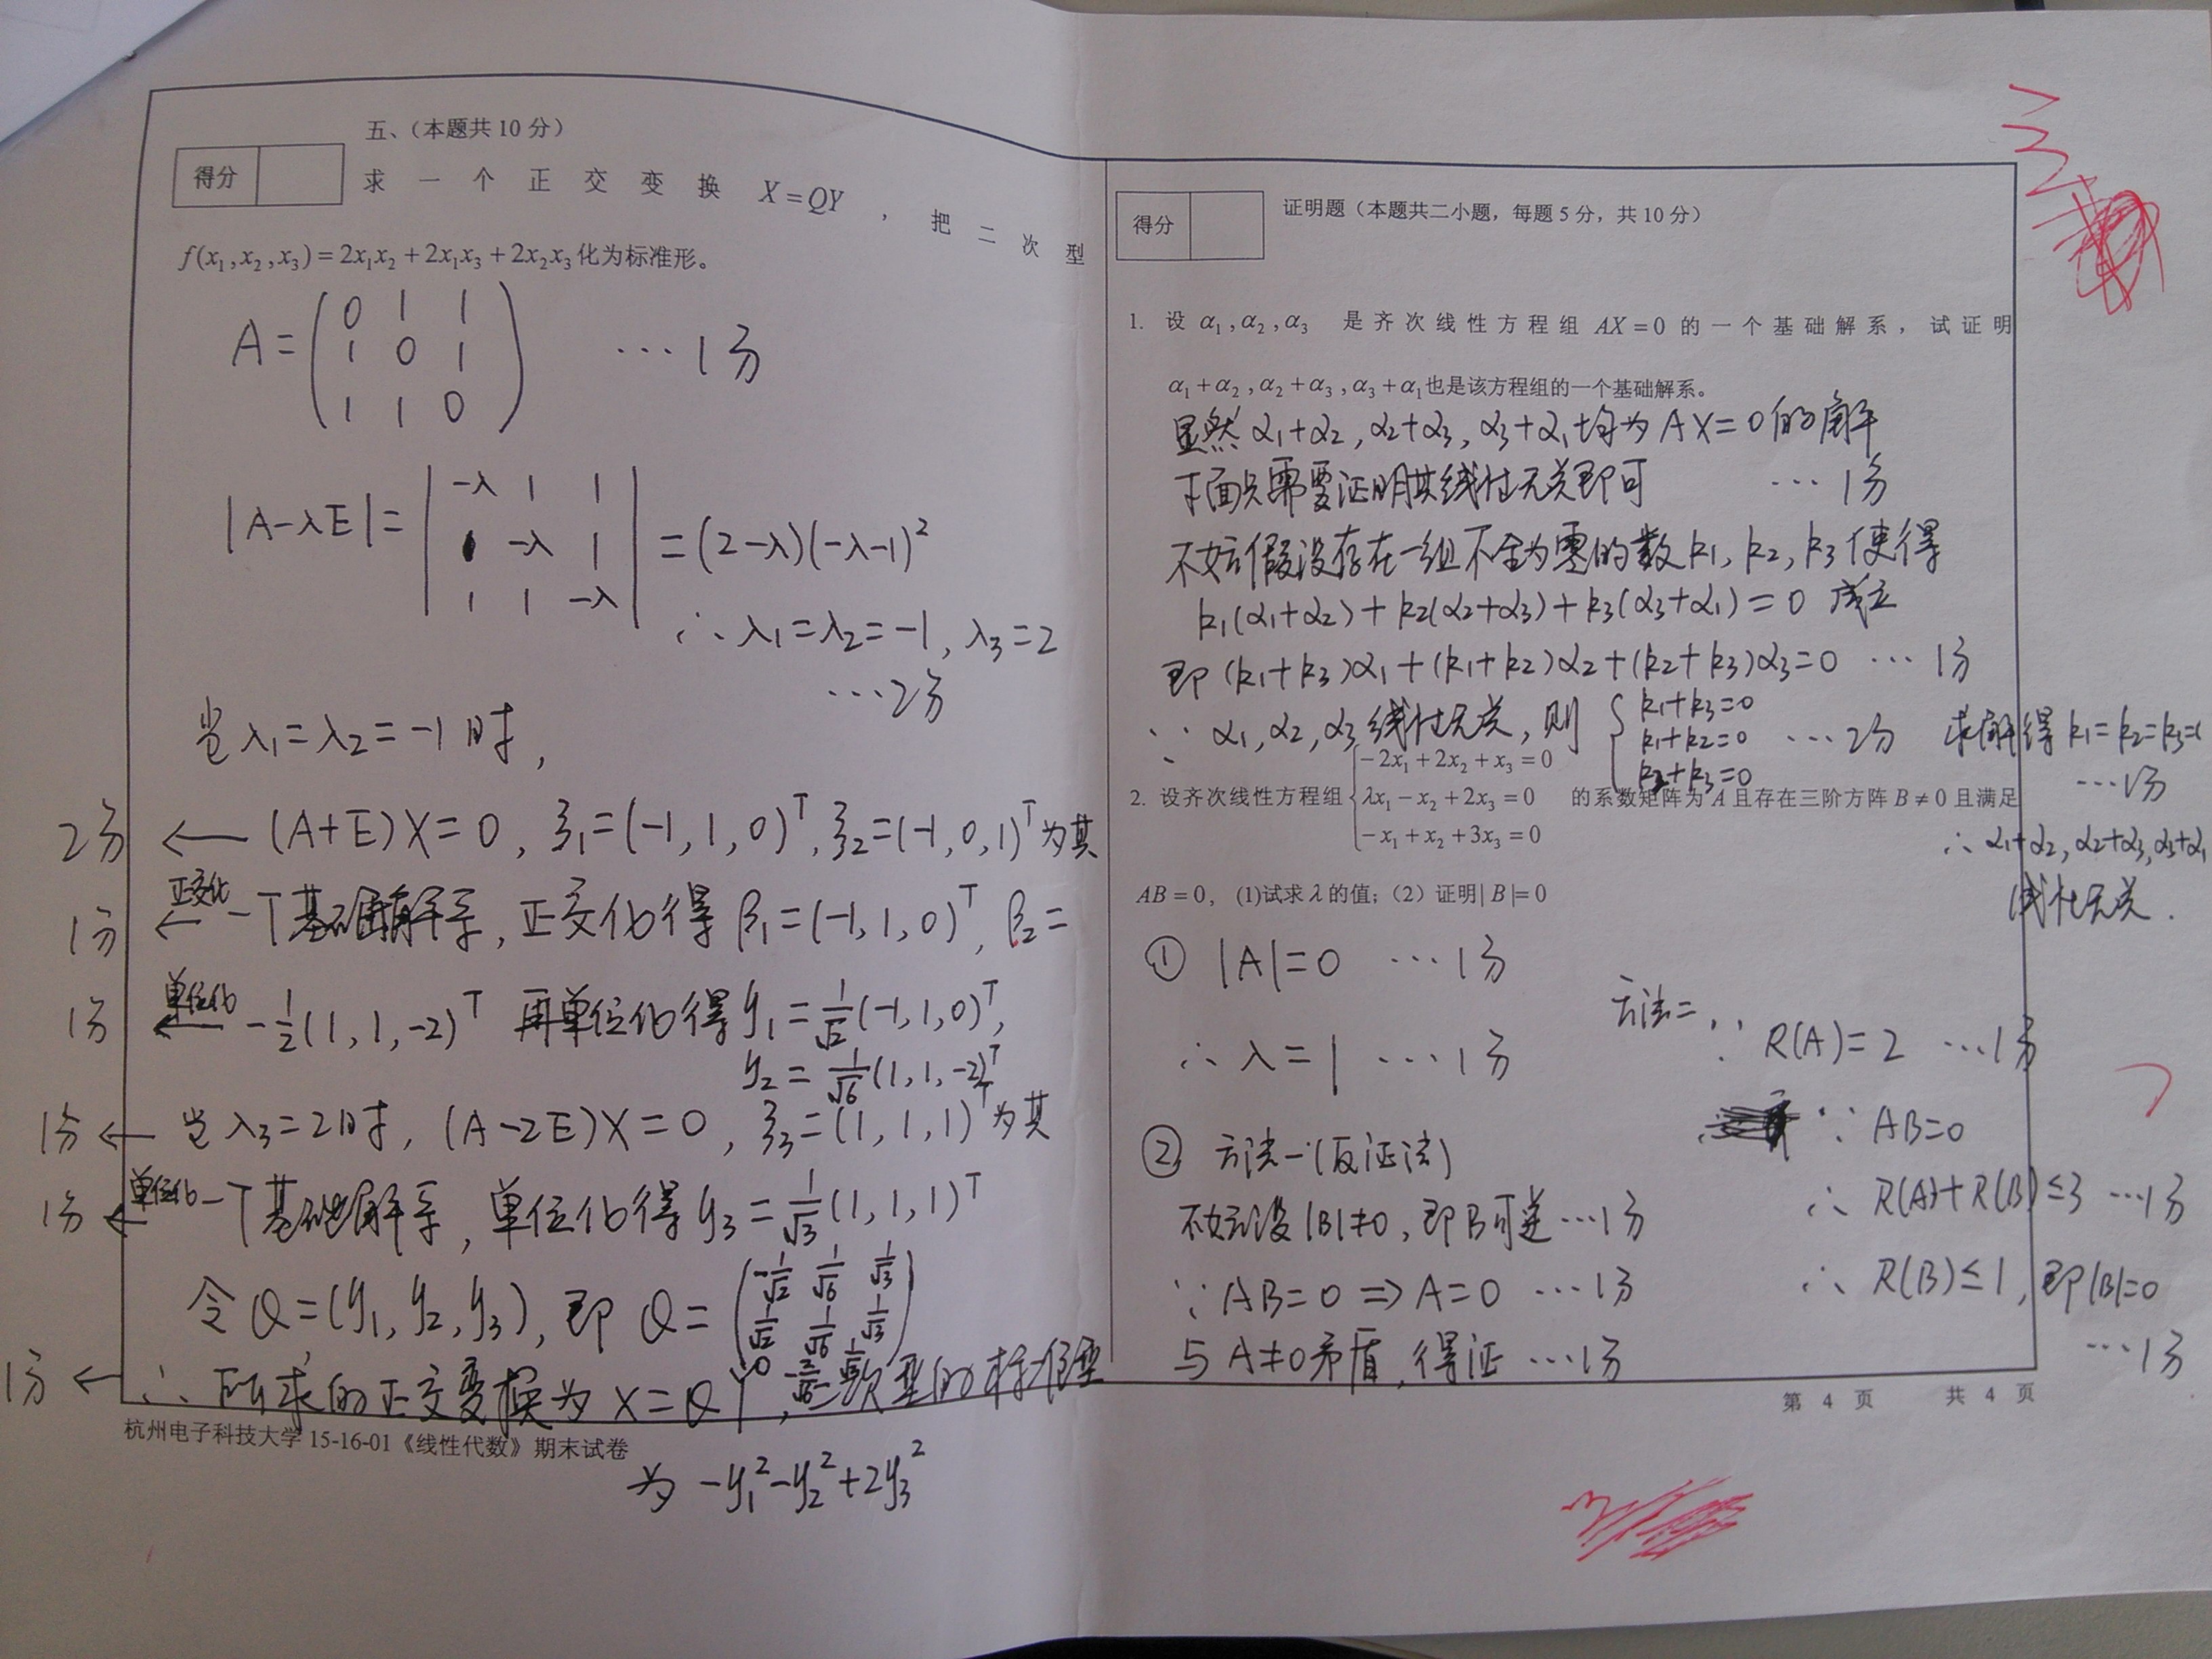 五、（本题共10分）
得分
求一个正交变换 X=QY ，把二次型
f(x₁,x₂,x₃)=2x₁x₂+2x₁x₃+2x₂x₃化为标准形。
A=(0 1 1
1 0 1 …1分
1 1 0)
|A-λE|=|-λ 1 1
1 -λ 1| =(2-λ)(-λ-1)²
1 1 -λ
∴λ₁=λ₂=-1, λ₃=2
…2分
当λ₁=λ₂=-1时,
2分 ← (A+E)X=0, ξ₁=(-1,1,0)ᵀ, ξ₂=(-1,0,1)ᵀ为其
1分 ←正交化 一个基础解系, 正交化得β₁=(-1,1,0)ᵀ, β₂=
1分 ←单位化 -½(1,1,-2)ᵀ 再单位化得y₁=1/√2(-1,1,0)ᵀ,
y₂=1/√6(1,1,-2)ᵀ
1分 ← 当λ₃=2时, (A-2E)X=0, ξ₃=(1,1,1)ᵀ为其
1分 ←单位化 一个基础解系, 单位化得y₃=1/√3(1,1,1)ᵀ
令Q=(y₁,y₂,y₃), 即Q=(-1/√2 1/√6 1/√3
1/√2 1/√6 1/√3
0 -2/√6 1/√3)
1分 ← ∴所求的正交变换为X=QY, 二次型的标准型
杭州电子科技大学 15-16-01《线性代数》期末试卷
为 -y₁²-y₂²+2y₃²
得分
证明题（本题共二小题，每题5分，共10分）
1. 设 α₁,α₂,α₃ 是齐次线性方程组 AX=0 的一个基础解系，试证明
α₁+α₂,α₂+α₃,α₃+α₁也是该方程组的一个基础解系。
显然α₁+α₂, α₂+α₃, α₃+α₁均为AX=0的解
下面只需要证明其线性无关即可 …1分
不妨假设存在一组不全为零的数k₁,k₂,k₃使得
k₁(α₁+α₂)+k₂(α₂+α₃)+k₃(α₃+α₁)=0 成立
即(k₁+k₃)α₁+(k₁+k₂)α₂+(k₂+k₃)α₃=0 …1分
∵α₁,α₂,α₃线性无关, 则 {k₁+k₃=0
k₁+k₂=0 …2分
k₂+k₃=0
求解得k₁=k₂=k₃=0
…1分
∴α₁+α₂, α₂+α₃, α₃+α₁
线性无关.
2. 设齐次线性方程组{-2x₁+2x₂+x₃=0
λx₁-x₂+2x₃=0 的系数矩阵为A且存在三阶方阵B≠0且满足
-x₁+x₂+3x₃=0
AB=0, (1)试求λ的值；(2) 证明|B|=0
① |A|=0 …1分
∴λ=1 …1分
② 方法一(反证法)
不妨设|B|≠0, 即B可逆 …1分
∵AB=0⇒A=0 …1分
与A≠0矛盾, 得证 …1分
方法二
∵ R(A)=2 …1分
∵ AB=0
∴ R(A)+R(B)≤3 …1分
∴ R(B)≤1, 即|B|=0
…1分
第 4 页 共 4 页